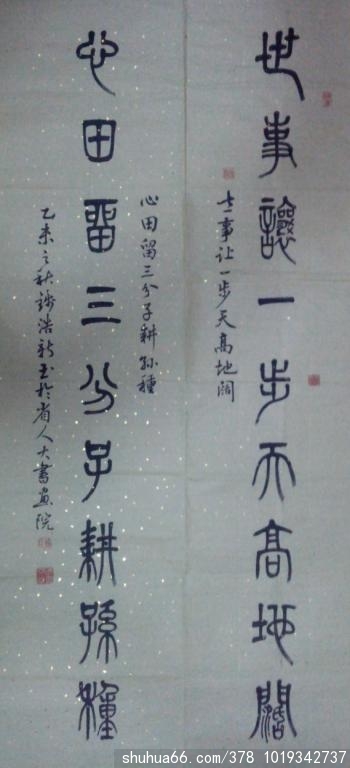 世事讓一步天高地闊
世事让一步天高地阔
心田留三分子耕孫種
心田留三分子耕孙種
乙未之秋 浩 书於省人大書画院
shuhua66.com/378 1019342737